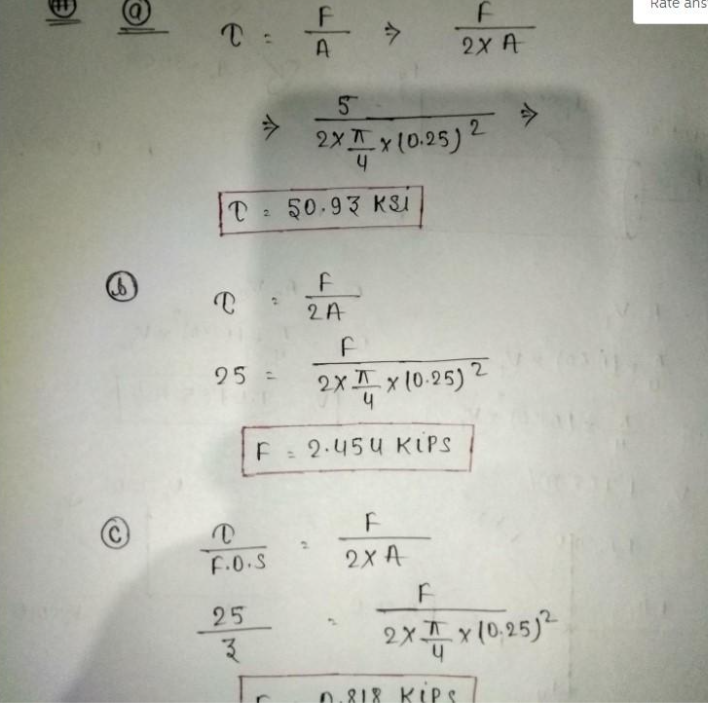 Rate ans
(a) τ = F/A ⇒ F/(2 × A)
⇒ 5/(2 × π/4 × (0.25)²) ⇒
τ = 50.93 KSi
(b) τ = F/2A
25 = F/(2 × π/4 × (0.25)²)
F = 2.454 KiPS
(c) τ/F.O.S = F/(2 × A)
25/3 = F/(2 × π/4 × (0.25)²)
0.818 KiPS